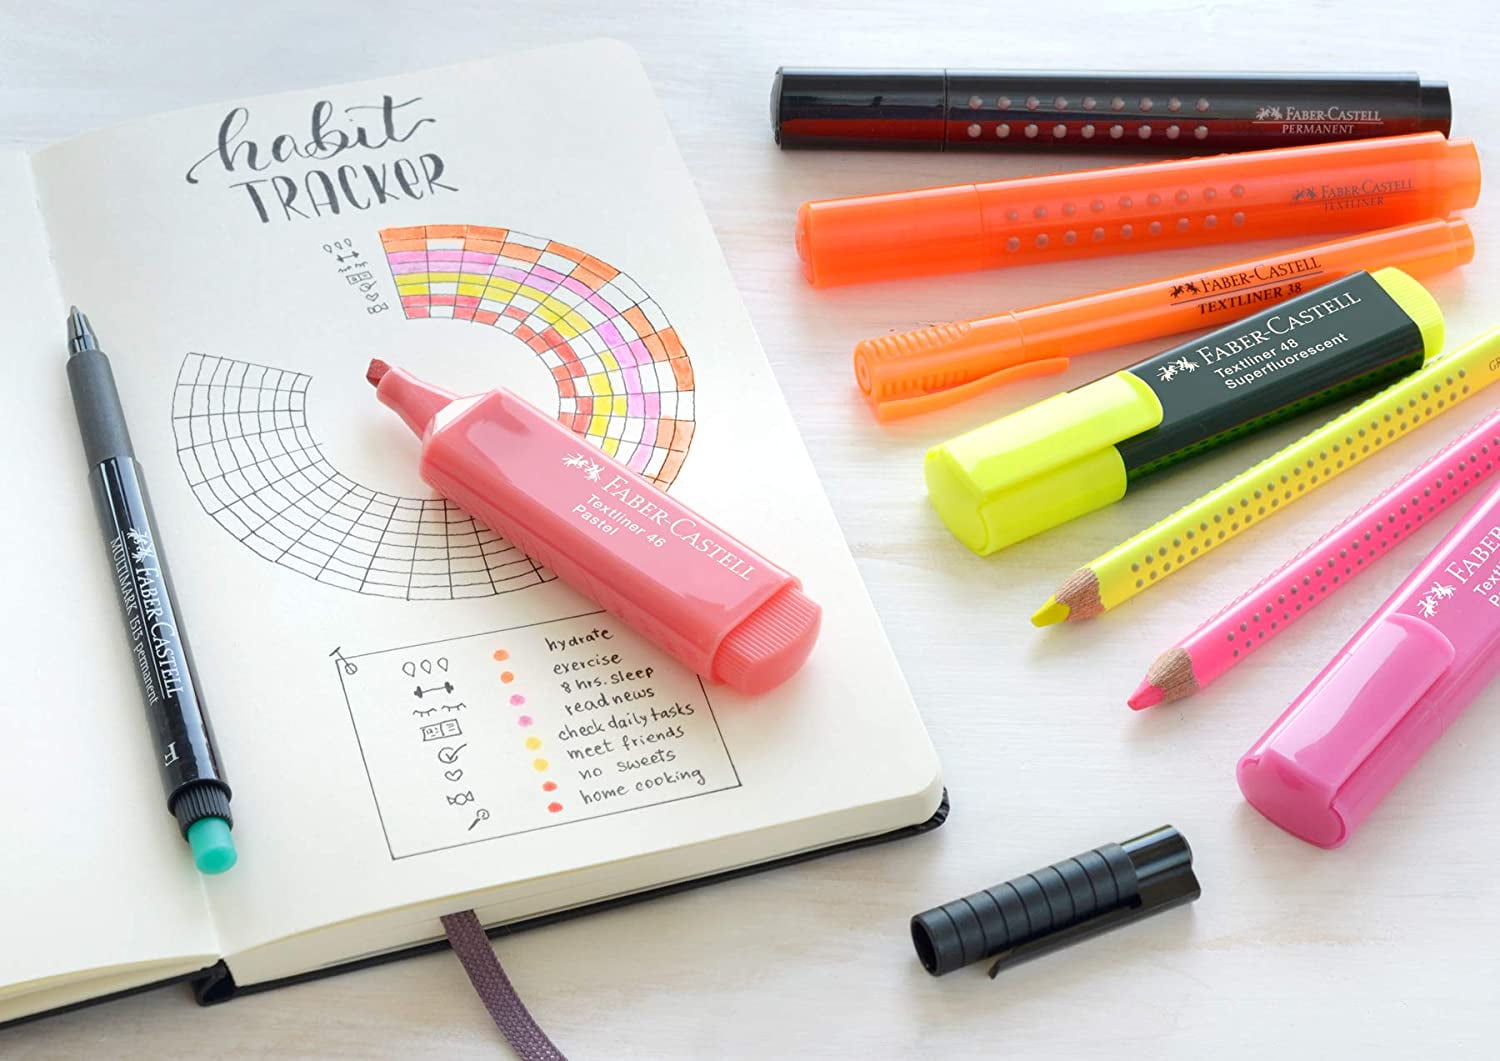 habit
TRACKER
hydrate
exercise
8 hrs. sleep
read news
check daily tasks
meet friends
no sweets
home cooking
FABER-CASTELL
MULTIMARK 1513 permanent
F
FABER-CASTELL
Textliner 46
Pastel
FABER-CASTELL
PERMANENT
FABER-CASTELL
TEXTLINER
FABER-CASTELL
TEXTLINER 38
FABER-CASTELL
Textliner 48
Superfluorescent
GR
FABER
Textl
P